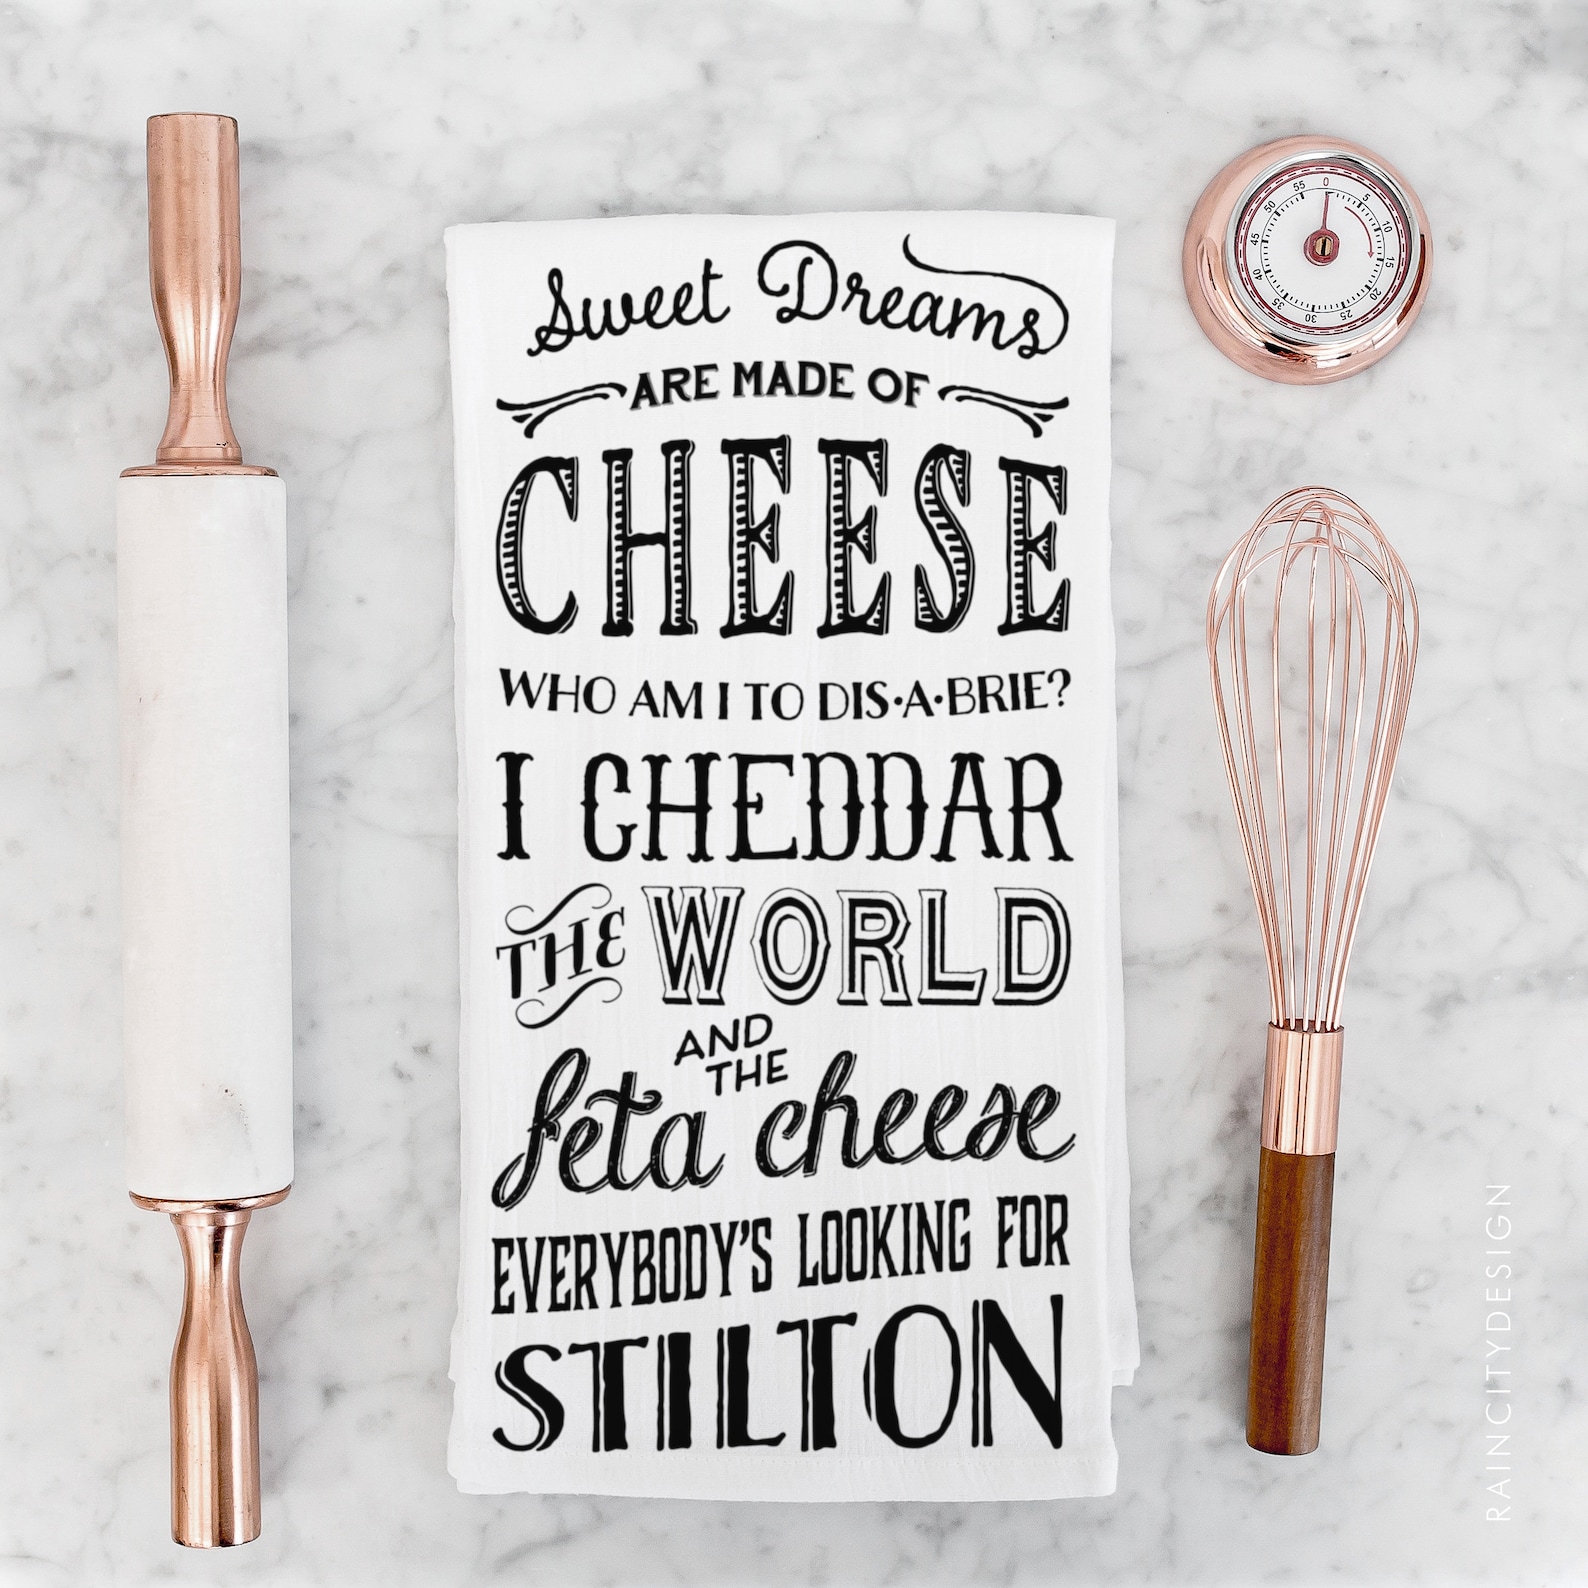 Sweet Dreams
ARE MADE OF
CHEESE
WHO AM I TO DIS•A•BRIE?
I CHEDDAR
THE WORLD
AND
THE
feta cheese
EVERYBODY'S LOOKING FOR
STILTON
0
5
10
15
20
25
30
35
40
45
50
55
RAINCITYDESIGN